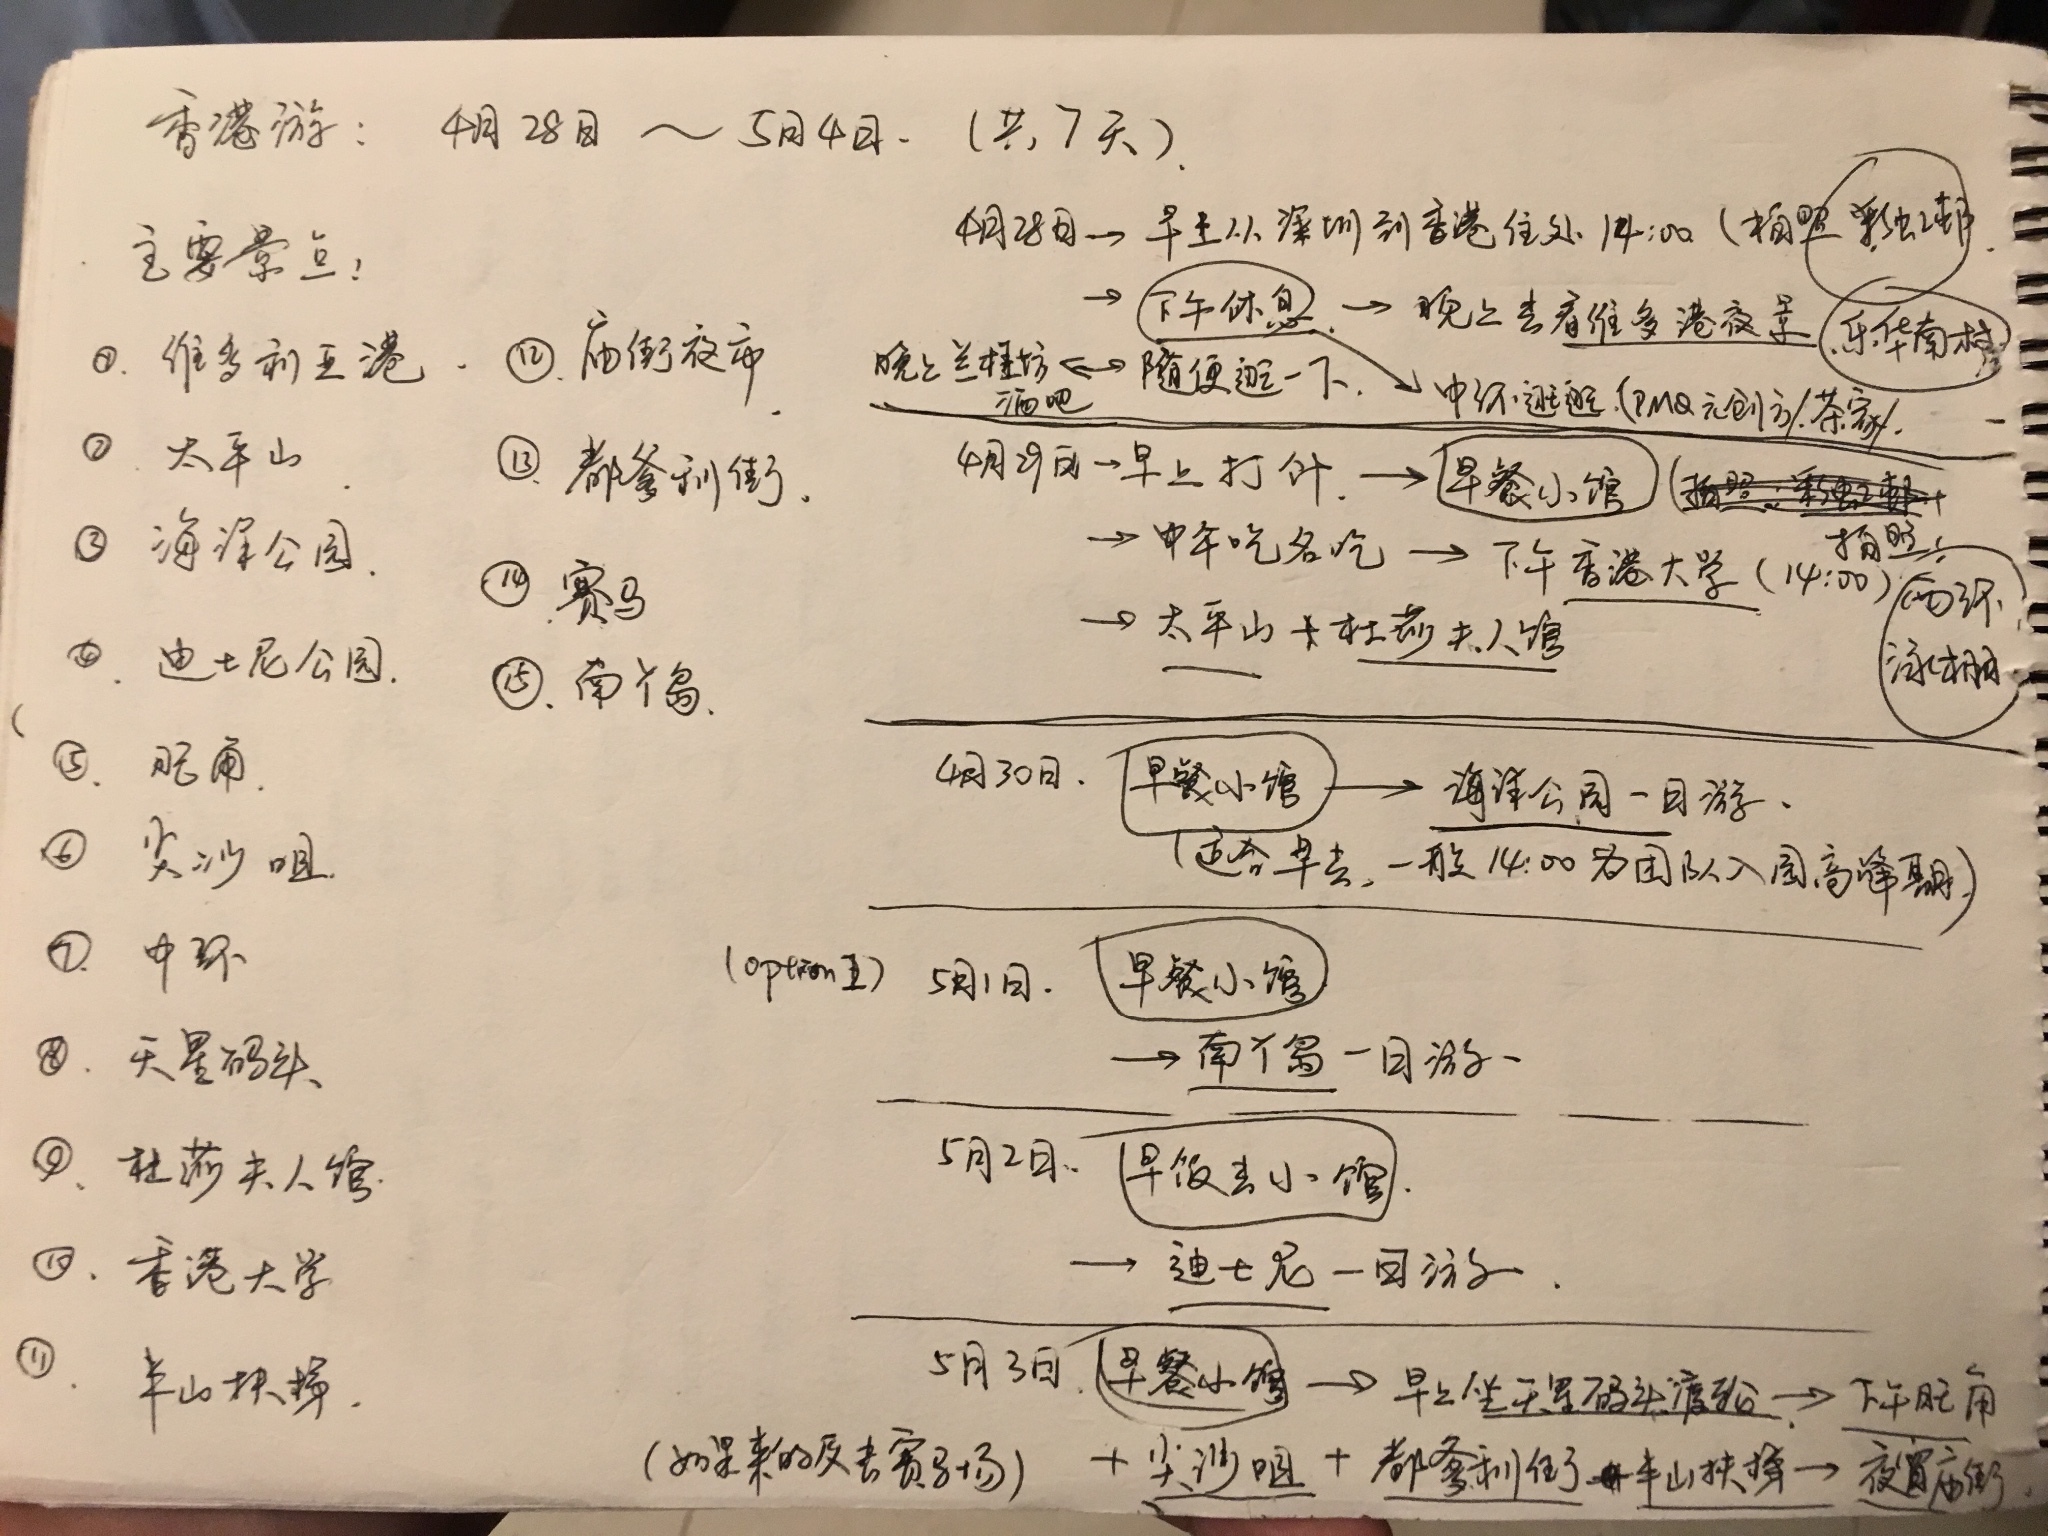 香港游： 4月28日 ～ 5月4日. (共7天).
主要景点：
①. 维多利亚港.
②. 太平山.
③. 海洋公园.
④. 迪士尼公园.
⑤. 旺角.
⑥. 尖沙咀.
⑦. 中环
⑧. 天星码头
⑨. 杜莎夫人馆.
⑩. 香港大学
⑪. 半山扶梯.
⑫. 庙街夜市.
⑬. 都爹利街.
⑭. 赛马
⑮. 南丫岛.
4月28日 → 早上从深圳到香港住处 14:00 (拍照 彩虹邨.
→ 下午休息. → 晚上去看维多港夜景 乐华南村
晚上兰桂坊 ↔ 随便逛一下.
酒吧
中环逛逛.(PMQ元创方/茶家/.
4月29日 → 早上打针. → 早餐小馆 (拍照：彩虹邨+
→ 中午吃名吃 → 下午香港大学 (14:00) 拍照：
西环
泳棚
→ 太平山 + 杜莎夫人馆
4月30日. 早餐小馆 → 海洋公园一日游.
(适合早去, 一般14:00为团队入园高峰期)
(option I) 5月1日. 早餐小馆
→ 南丫岛一日游.
5月2日. 早饭去小馆.
→ 迪士尼一日游.
5月3日. 早餐小馆 → 早上坐天星码头渡轮 → 下午旺角
(如果来的及去赛马场) + 尖沙咀 + 都爹利街 + 半山扶梯 → 夜宵庙街.